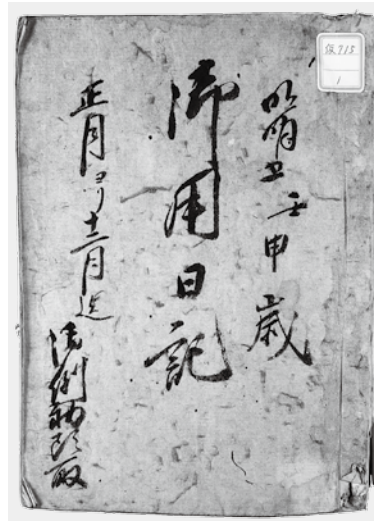 715
1
明治五壬申歳
御用日記
正月ヨリ十二月迄